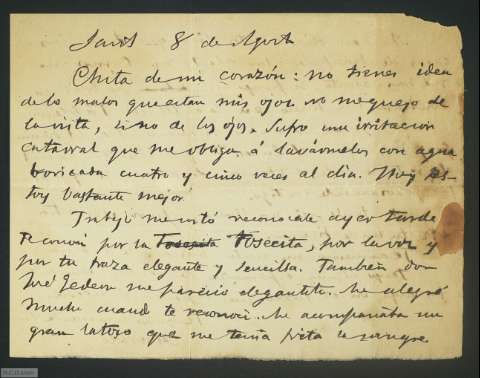 Paris 8 de Agosto
Chita de mi corazón: no tienes idea
de lo malos que estan mis ojos no me quejo de
la vista, sino de los ojos. Sufro una irritacion
catarral que me obliga á lavármelos con agua
boricada cuatro y cinco veces al dia. Hoy es-
toy bastante mejor
Trabajo me costó reconocerte ayer tarde
Te conocí por la Tosecita, por la voz y
por tu traza elegante y sencilla. También don
José me pareció elegantito. Me alegré
mucho cuando te reconocí. Me acompañaba un
gran latoso que me tenia frita la sangre